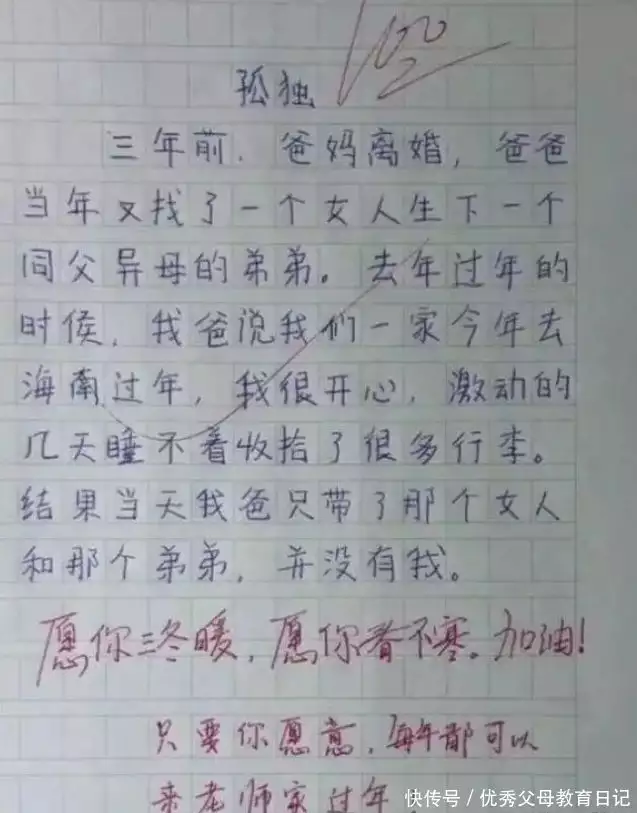 100
孤独
三年前.爸妈离婚,爸爸
当年又找了一个女人生下一个
同父异母的弟弟。去年过年的
时侯,我爸说我们一家今年去
海南过年,我很开心,激动的
几天睡不着收拾了很多行李。
结果当天我爸只带了那个女人
和那个弟弟,并没有我。
愿你三冬暖,愿你春不寒。加油!
只要你愿意,每年都可以
来老师家过年
快传号/优秀父母教育日记